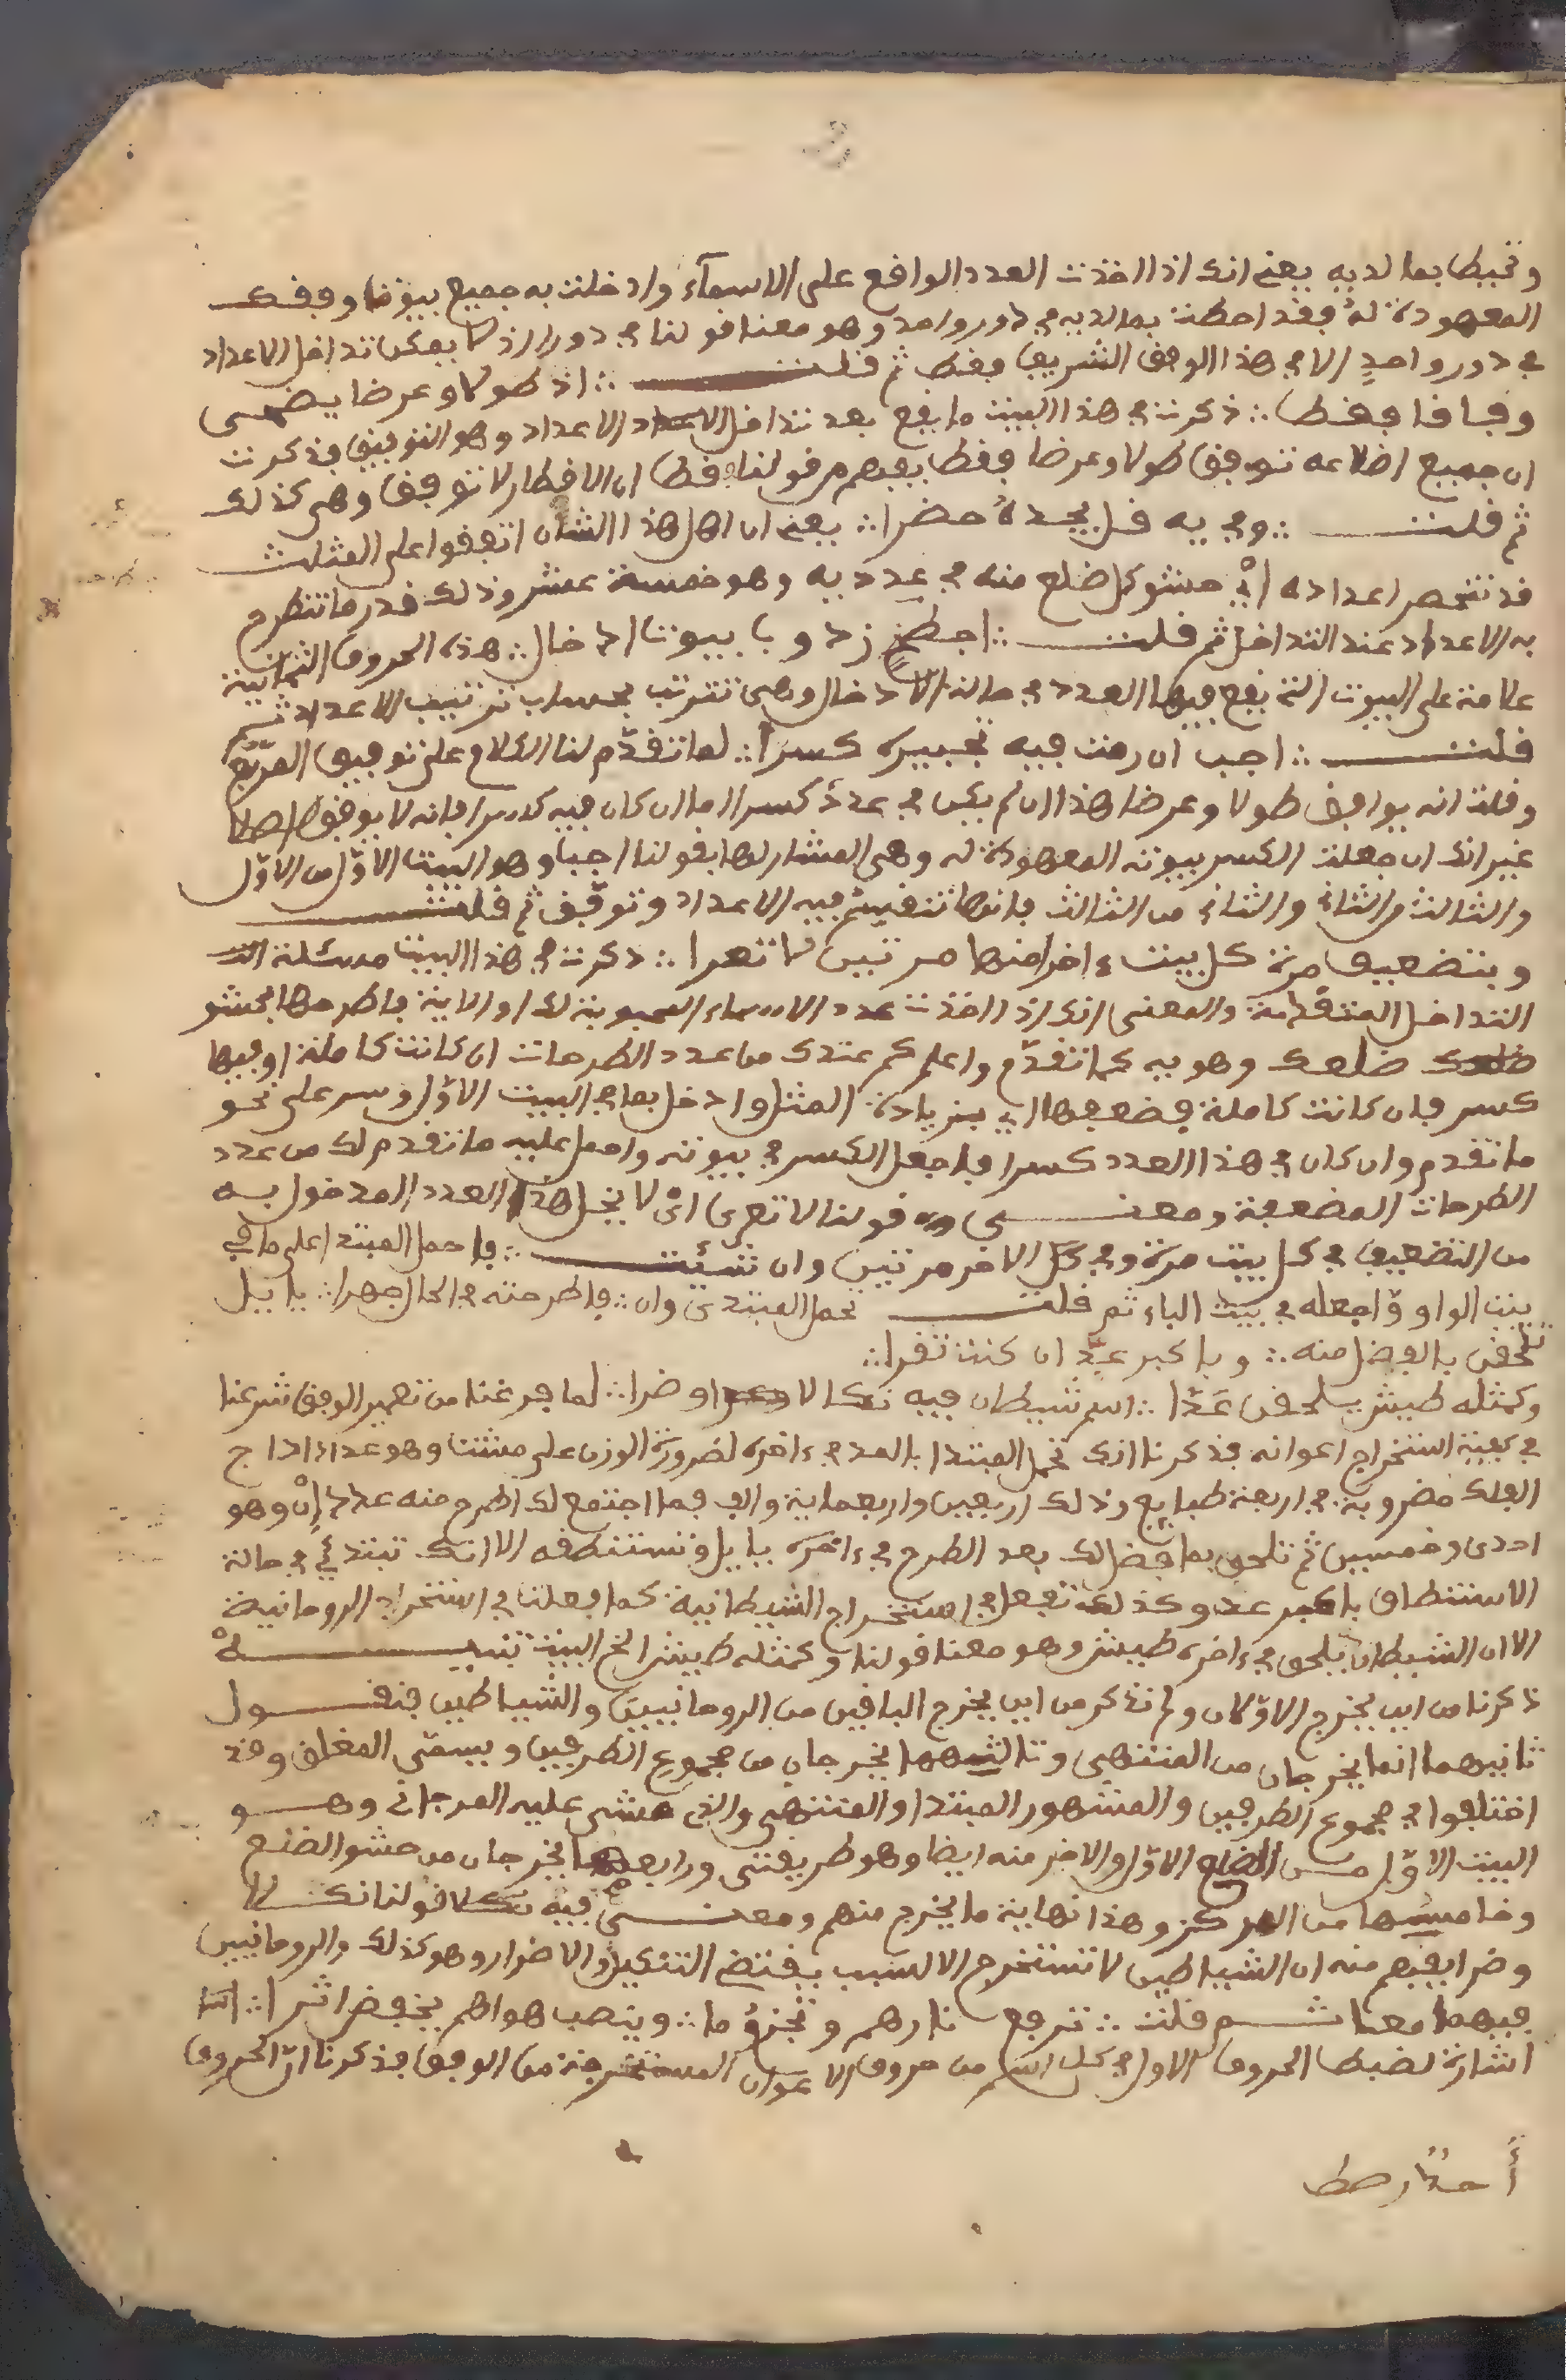 وتحيط بما لديه يعني انك اذا اخذت العدد الواقع على الاسماء وادخلت به جميع بيوتها وفقك
المعهودة له فقد احطت بما لديه في دور واحد وهو معنا قولنا في دور اذ لا يمكن تداخل الاعداد
في دور واحد الا في هذا الوفق الشريف فقط ثم قلت ∴ اذ طولا وعرضا يضحى
وفاقا فقط ∴ ذكرت في هذا البيت ما يقع بعد تداخل الاعداد وهو التوفيق فذكرت
ان جميع اضلاعه توفق طولا وعرضا فقط يفهم من قولنا فقط ان الاقطار لا توفق وهي كذلك
ثم قلت ∴ وفي يه قل يحده حضرا ∴ يعني ان اهل هذا الشان اتفقوا على المثلث
قد تنحصر اعداده اي حشو كل ضلع منه في عدد يه وهو خمسة عشر وذلك قدر ما تنطرح
به الاعداد عند التداخل ثم قلت ∴ اجطح زد وبا بيوت ادخال ∴ هذه الحروف الثمانية
علامة على البيوت التي يقع فيها العدد في حالة الادخال وهي تترتب بحساب ترتيب الاعداد ثم
قلت ∴ اجب ان رمت فيه تجبيره كسرا ∴ لما تقدم لنا الكلام على توفيق المربع
وقلت انه يوافق طولا وعرضا هذا ان لم يكن في عدد كسرا اما ان كان فيه كسرا فانه لا يوفق اصلا
غير انك ان جعلت الكسر بيوته المعهودة له وهي المشار لها بقولنا اجبا وهو البيت الاول من الاول
والثالث من الثاني والثاني من الثالث فانها تتقيم فيه الاعداد وتوفق ثم قلت
وبتضعيف مرة كل بيت ءاخر منها مرتين لا تعرا ∴ ذكرت في هذا البيت مسئلة
التداخل المتقدمة والمعنى انك اذا اخذت عدد الاسماء المحبوبة لك او الاية فاطرحها بحشو
ضلعك وهو يه كما تقدم واعلم كم عندك من عدد الطرحات ان كانت كاملة او فيها
كسر فان كانت كاملة فضعفها اي بزيادة المثل وادخل بها في البيت الاول وسر على نحو
ما تقدم وان كان في هذا العدد كسرا فاجعل الكسر في بيوته واحمل عليه ما تقدم لك من عدد
الطرحات المضعفة ومعنى قولنا لا تعرى اي لا يخل هذا العدد المدخول به
من التضعيف في كل بيت مرة وفي كل الاخر مرتين وان شئت ∴ فاحمل المبتدا على ما في
بيت الواو واجعله في بيت الباء ثم قلت تحمل المبتدى وان ∴ فاطرحته في الحال جهرا ∴ يا ييل
تلحق بالفضل منه ∴ وباكبر عد ان كنت تقرا ∴
وكمثله طيش يلحق عدا ∴ اسم شيطان فيه نكالا وضرا ∴ لما فرغنا من تعمير الوفق شرعنا
في كيفية استخراج اعوانه فذكرنا انك تحمل المبتدا بالمد في ءاخره لضرورة الوزن على مشت وهو عدد ادراج
الفلك مضروبة في اربعة طبايع وذلك اربعين واربعماية والف فما اجتمع لك اطرح منه عدد ان وهو
احدى وخمسين ثم تلحق بما فضل لك بعد الطرح في ءاخره ياييل وتستنطقه الا انك تبتدئ في حالة
الاستنطاق باكبر عد وكذلك تفعل في استخراج الشيطانية كما فعلت في استخراج الروحانية
الا ان الشيطان يلحق في ءاخره طيش وهو معنا قولنا وكمثله طيش الخ البيت تنبيه
ذكرنا من اين يخرج الاولان ولم نذكر من اين يخرج الباقين من الروحانيين والشياطين فنقول
ثانيهما انما يخرجان من المنتهى وثالثهما يخرجان من مجموع الطرفين ويسمى المغلق وقد
اختلفوا في مجموع الطرفين والمشهور المبتدا والمنتهى والذي مشى عليه المرجاني وهو
البيت الاول من الضلع الاول والاخر منه ايضا وهو طريقتي ورابعهما يخرجان من حشو الضلع
وخامسها من المركز وهذا نهاية ما يخرج منهم ومعنى فيه نكالا قولنا نكالا
وضرا يفهم منه ان الشياطين لا تستخرج الا لسبب يقتضي التنكيل والاضرار وهو كذلك والروحانيين
فيهما معا ثم قلت ∴ ترفع نارهم وتجزم ما ∴ وينصب هواهم بخفض اثرا ∴
اشارة لضبط الحروف الاول في كل اسم من حروف الاعوان المستخرجة من الوفق فذكرنا ان الحروف